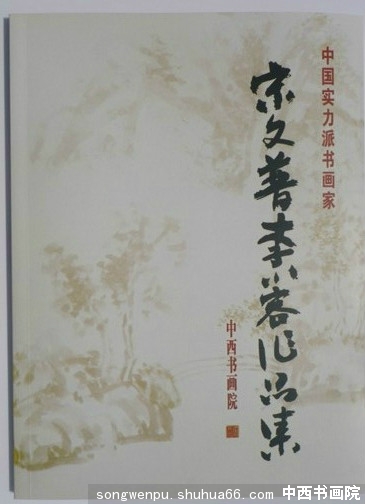 中国实力派书画家
宋文普李容作品集
中西书画院
songwenpu.shuhua66.com 中西书画院